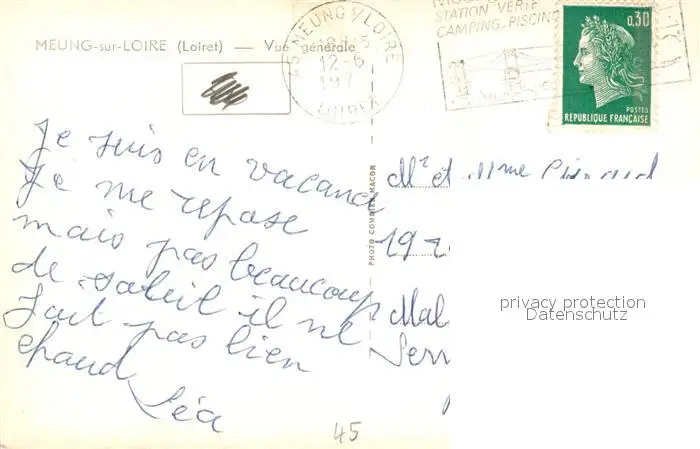 STATION VERTE
CAMPING-PISCINE
MEUNG-sur-LOIRE (Loiret) — Vue générale
45 MEUNG S/LOIRE
12-6
LOIRET
0,30
POSTES
REPUBLIQUE FRANÇAISE
Je suis en vacance
Je me repose
mais pas beaucoup
de soleil il ne
fait pas bien
chaud
Léa
PHOTO COMBIER MACON
Mr et Mme
19
Mal
45
privacy protection
Datenschutz